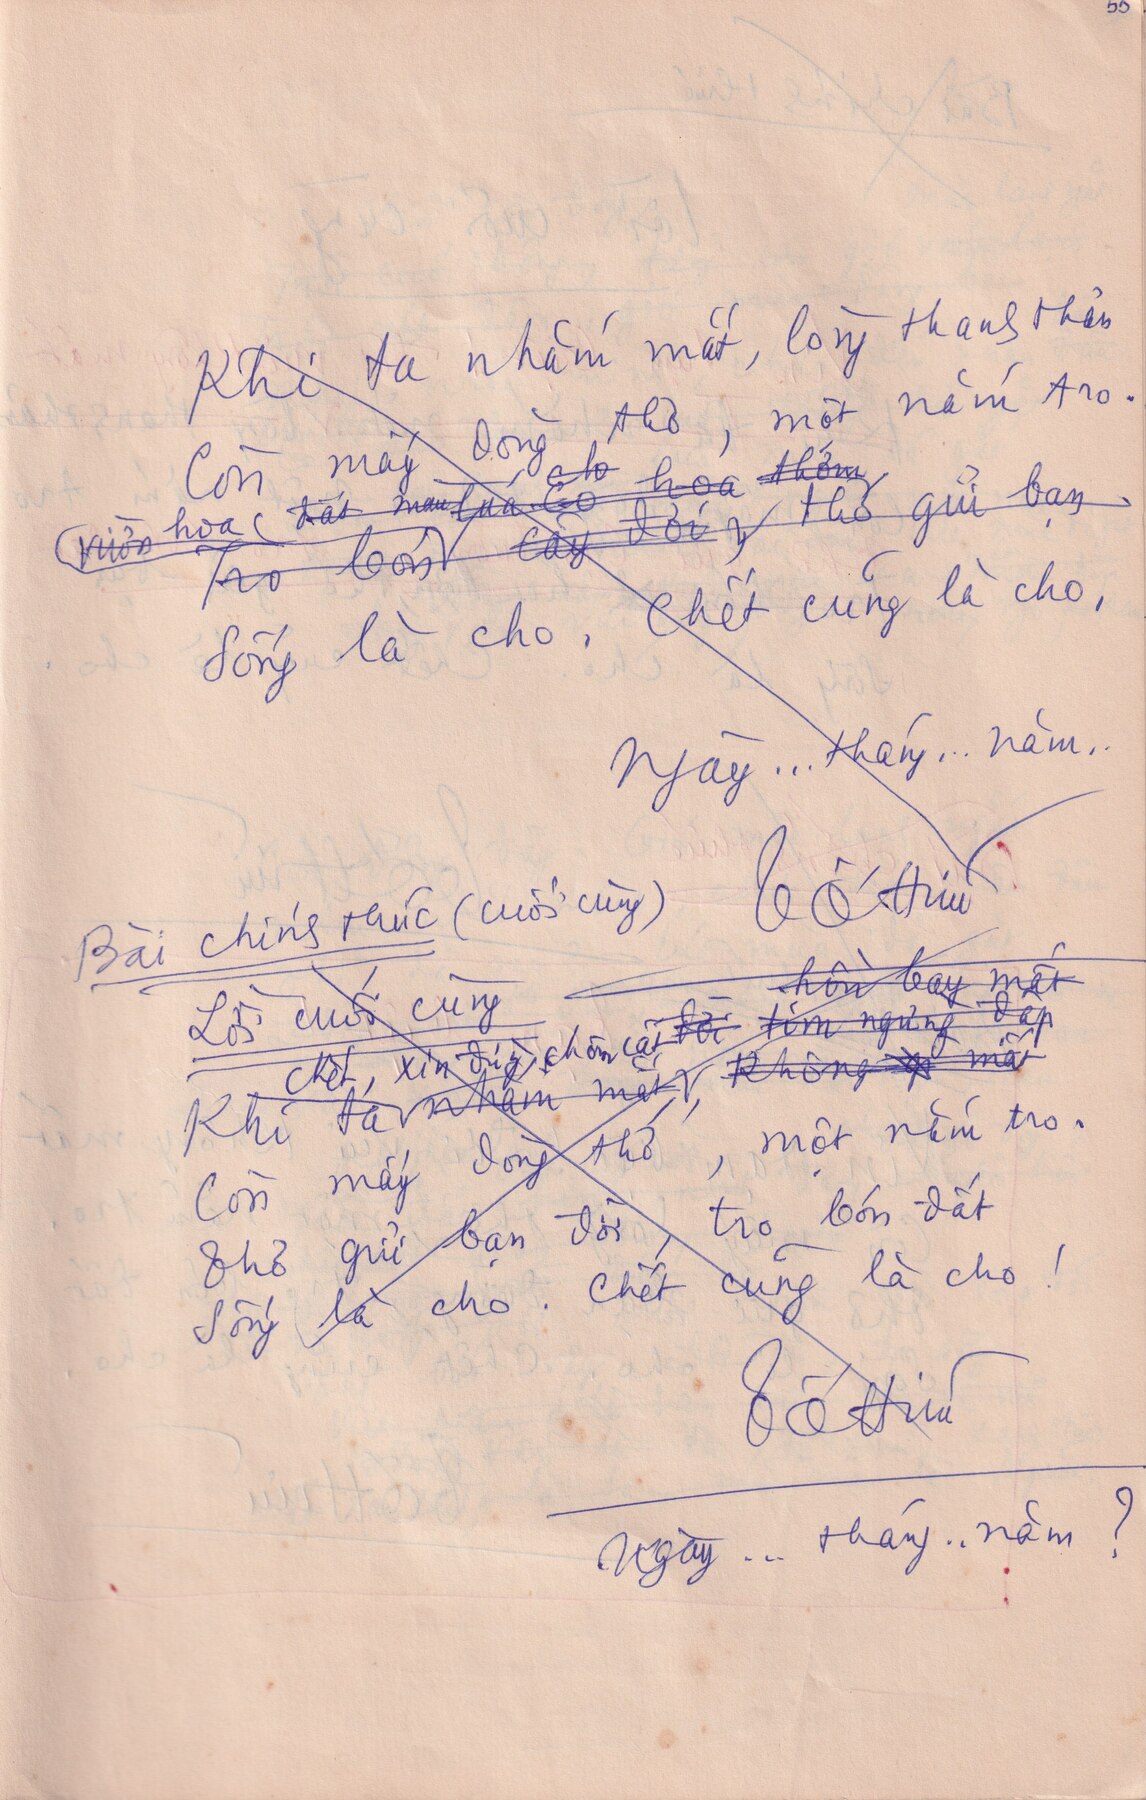 55
Khi ta nhắm mắt, lòng thanh thản
Còn mấy dòng thơ, một nắm tro.
cho hoa thơm
vườn hoa ( đất màu
Tro bón cây đời, thơ gửi bạn
Sống là cho. Chết cũng là cho.
Ngày ... tháng ... năm..
Tố Hữu
Bài chính thức (cuối cùng)
Lời cuối cùng
hồn bay mất
chết, xin đừng chôn cất tim ngừng đập
Khi ta nhắm mắt, không mất
Còn mấy dòng thơ, một nắm tro.
Thơ gửi bạn đời, tro bón đất
Sống là cho. Chết cũng là cho!
Tố Hữu
Ngày ... tháng .. năm ?